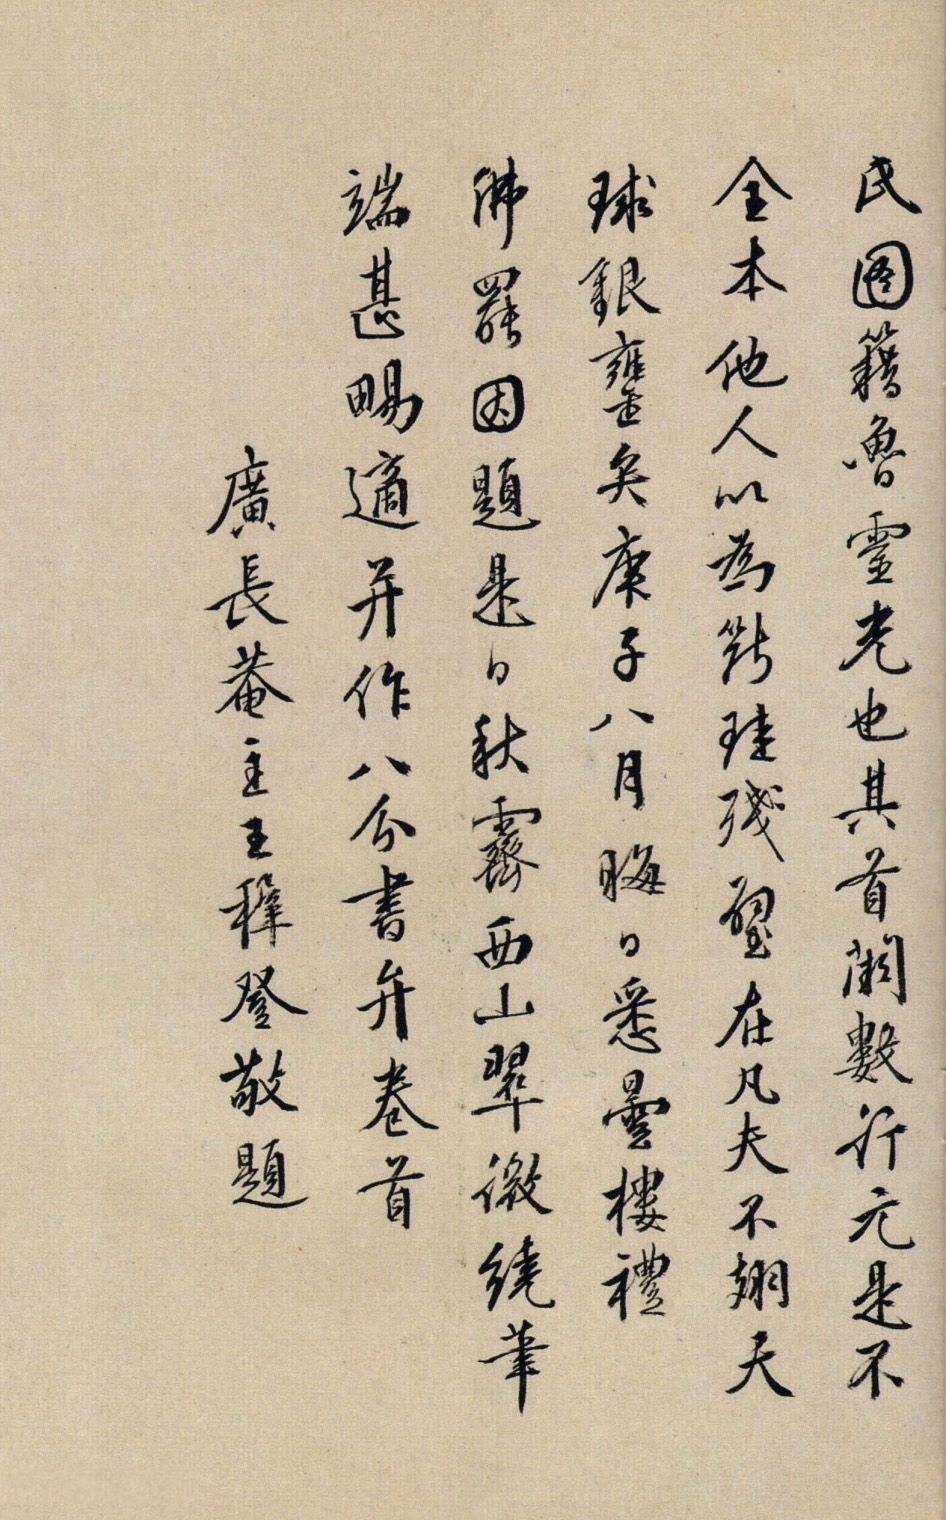 氏圖籍魯靈光也其首闕數行元是不
全本他人以為斷珪殘璧在凡夫不翅天
球銀甕矣庚子八月晦日悉曇樓禮
佛罷因題是日秋霽西山翠微繞筆
端甚暢適并作八分書弁卷首
廣長菴主王穉登敬題